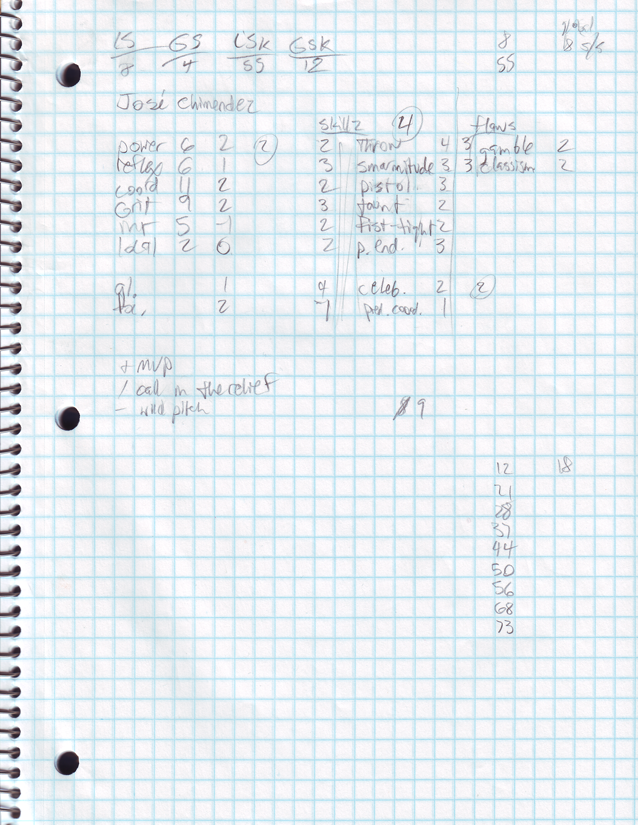 LS GS LSK GSK 8
8 4 55 12 55 18 s/s
José Chimendez
Skillz 4 flaws
power 6 2 2 2 Throw 4 3 gamble 2
reflex 6 1 3 smarmitude 3 3 classism 2
coord 11 2 2 pistol 3
Grit 9 2 3 taunt 2
int 5 -1 2 fist-fight 2
2 0 2 p. end. 3
1 4 celeb. 2 2
2 -1 1
+ MVP
/ call in the relief
- wild pitch 9
12 18
21
28
37
44
50
56
68
73